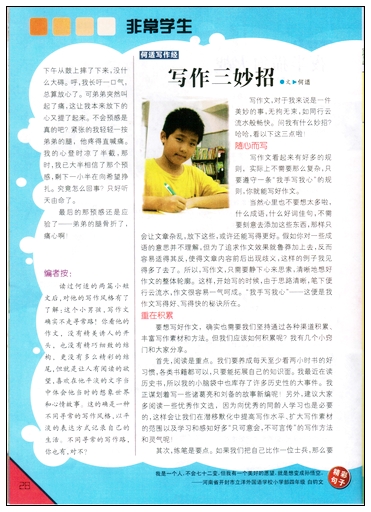 非常学生
下午从鼓上摔了下来,没什
么大碍。呼,我长吁一口气,
总算放心了。可弟弟突然叫
起了痛,这让我本来放下的
心又提了起来。不会预感是
真的吧?紧张的我轻轻一按
弟弟的腿,他疼得直喊痛。
我的心登时凉了半截,那
时,我已大半相信了那个预
感,剩下一小半在向希望挣
扎。究竟怎么回事?只好听
天由命了。
最后的那预感还是应
验了——弟弟的腿骨折了,
痛心啊!
编者按:
读过何适的两篇小短
文后,对他的写作风格有了
了解;这个小男孩,写作文
确实不是常常路!你看他的
作文,没有精美诱人的开
头,也没有精巧细致的结
构,更没有多么精彩的结
尾,但就是让人有阅读的欲
望,喜欢在他平淡的文字当
中体会他当时的想象世界
和心情故事。这的确是一种
不同寻常的写作风格,以平
淡的表达方式记录自己的
生活,不同寻常的写作路,
你也有,对不?
28
何适写作经
写作三妙招
●文/何适
写作文,对于我来说是一件
美妙的事,无拘无束,如同行云
流水般畅快。问我有什么妙招?
哈哈,看以下这三点啦!
随心而写
写作文看起来有好多的规
则,实际上不需要那么复杂,只
要遵守一条“我手写我心”的规
则,你就能写好作文。
当然心里也不要想太多啦,
什么成语,什么好词佳句,不需
要刻意去添加这些东西,那样只
会让文章杂乱,放下这些,或许还能写得更好。假如你对一些成
语的意思并不理解,但为了追求作文效果就鲁莽加上去,反而
容易适得其反,使得文章内容前后出现歧义,这样的例子我见
得多了去了。所以,写作文,只需要静下心来思索,清晰地想好
作文的整体轮廓。这样,开始写的时候,由于思路清晰,笔下便
行云流水,作文很容易一气呵成。“我手写我心”——这便是我
作文写得好、写得快的秘诀所在。
重在积累
要想写好作文,确实也需要我们坚持通过各种渠道积累、
丰富写作素材和方法。但我们应该如何积累呢?我有几个小窍
门和大家分享。
首先,阅读是重点。我们要养成每天至少看两小时书的好
习惯,各类书籍都可以,只要能拓展自己的知识面。我最近在读
历史书,所以我的小脑袋中也库存了许多历史性的大事件。我
正谋划着写一些诸葛亮和刘备的故事新编呢!另外,建议大家
多阅读一些优秀作文选,因为向优秀的同龄人学习也是必要
的,这样会让我们在潜移默化中提高写作水平,扩大写作素材
的范围以及学习和感知好多“只可意会,不可言传”的写作方法
和灵气呢!
其次,练笔是要点。如果我们把自己比作一位士兵,那么要
我是一个人,不会七十二变,但我有一个美好的愿望,就是想变成孙悟空。
——河南省开封市立洋外国语学校小学部四年级 白帆文
精彩
句子